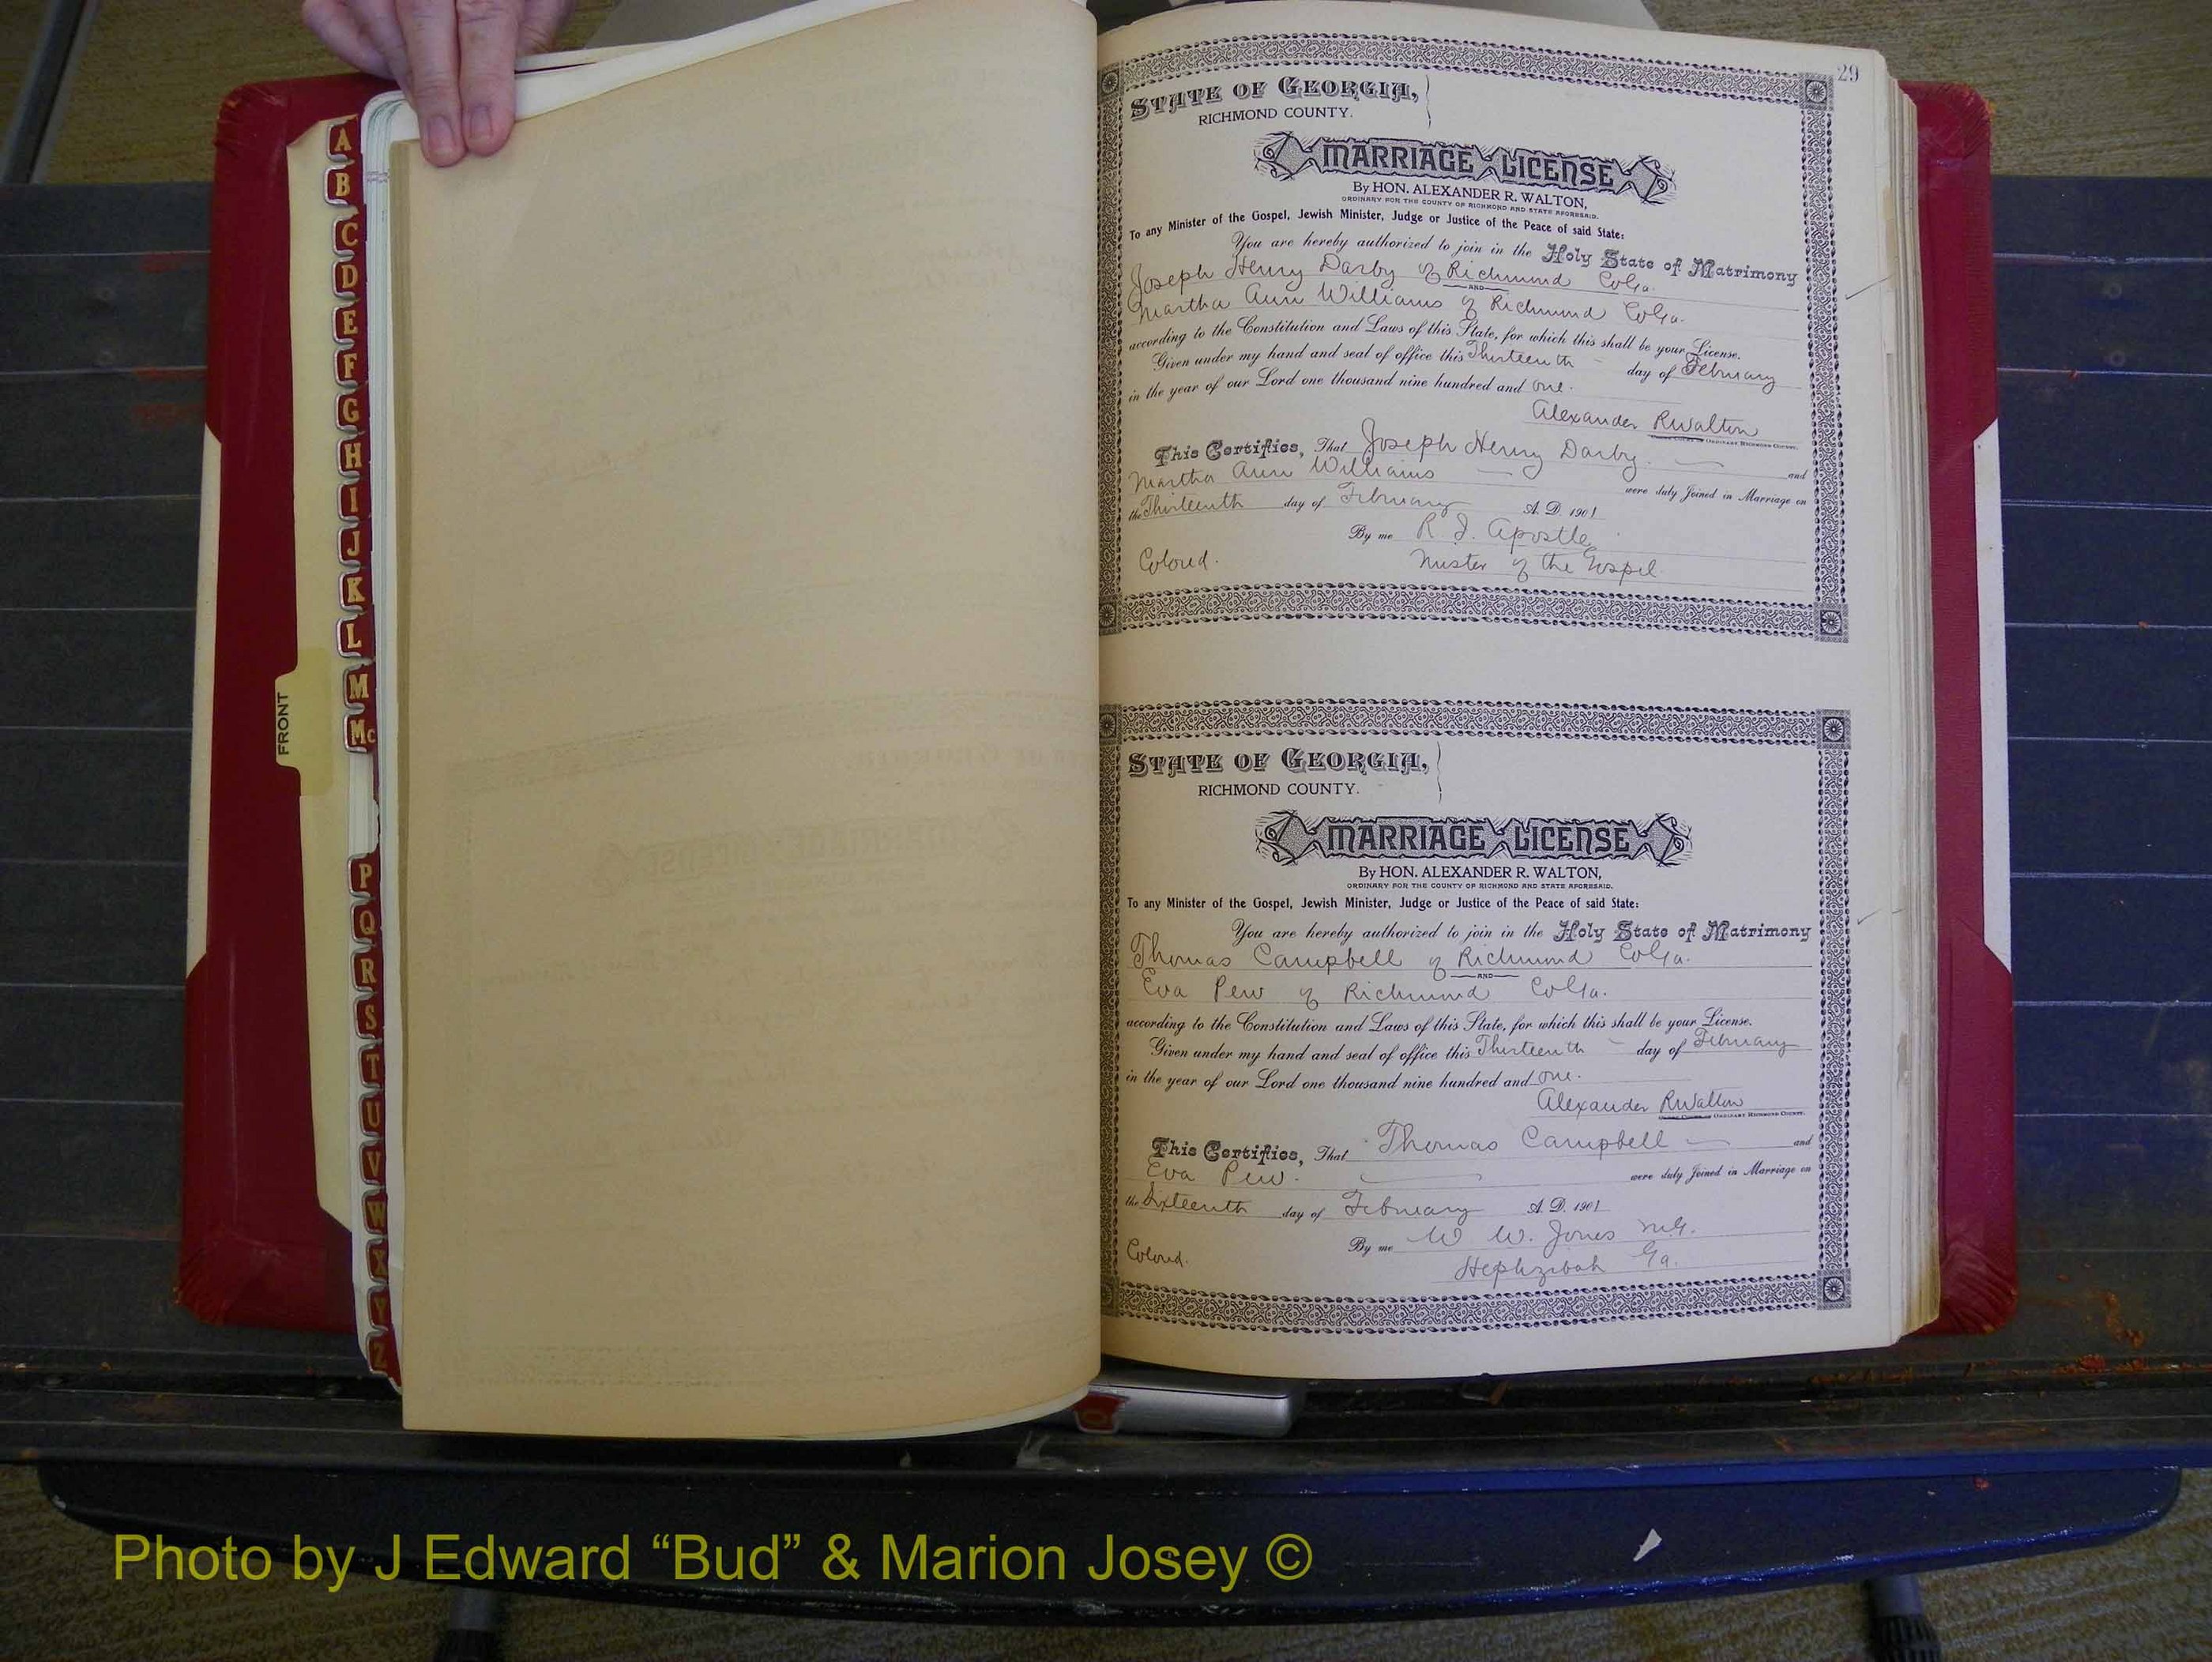 A
B
C
D
E
F
G
H
I
J
K
L
M
Mc
P
Q
R
S
T
U
V
W
X
Y
Z
FRONT
29
STATE OF GEORGIA,
RICHMOND COUNTY.
MARRIAGE LICENSE
By HON. ALEXANDER R. WALTON,
ORDINARY FOR THE COUNTY OF RICHMOND AND STATE AFORESAID.
To any Minister of the Gospel, Jewish Minister, Judge or Justice of the Peace of said State:
You are hereby authorized to join in the Holy State of Matrimony
Joseph Henry Darby of Richmond Co Ga.
AND
Martha Ann Williams of Richmond Co Ga.
according to the Constitution and Laws of this State, for which this shall be your License.
Given under my hand and seal of office this Thirteenth day of February
in the year of our Lord one thousand nine hundred and one.
Alexander R Walton
ORDINARY RICHMOND COUNTY.
This Certifies, That Joseph Henry Darby and
Martha Ann Williams were duly Joined in Marriage on
the Thirteenth day of February A. D. 1901
By me R. J. Apostle
Colored. Mister of the Gospel
STATE OF GEORGIA,
RICHMOND COUNTY.
MARRIAGE LICENSE
By HON. ALEXANDER R. WALTON,
ORDINARY FOR THE COUNTY OF RICHMOND AND STATE AFORESAID.
To any Minister of the Gospel, Jewish Minister, Judge or Justice of the Peace of said State:
You are hereby authorized to join in the Holy State of Matrimony
Thomas Campbell of Richmond Co Ga.
AND
Eva Pew of Richmond Co Ga.
according to the Constitution and Laws of this State, for which this shall be your License.
Given under my hand and seal of office this Thirteenth day of February
in the year of our Lord one thousand nine hundred and one.
Alexander R Walton
ORDINARY RICHMOND COUNTY.
This Certifies, That Thomas Campbell and
Eva Pew. were duly Joined in Marriage on
the Sixteenth day of February A. D. 1901
By me W W. Jones M.G.
Colored. Hephzibah Ga.
Photo by J Edward “Bud” & Marion Josey ©